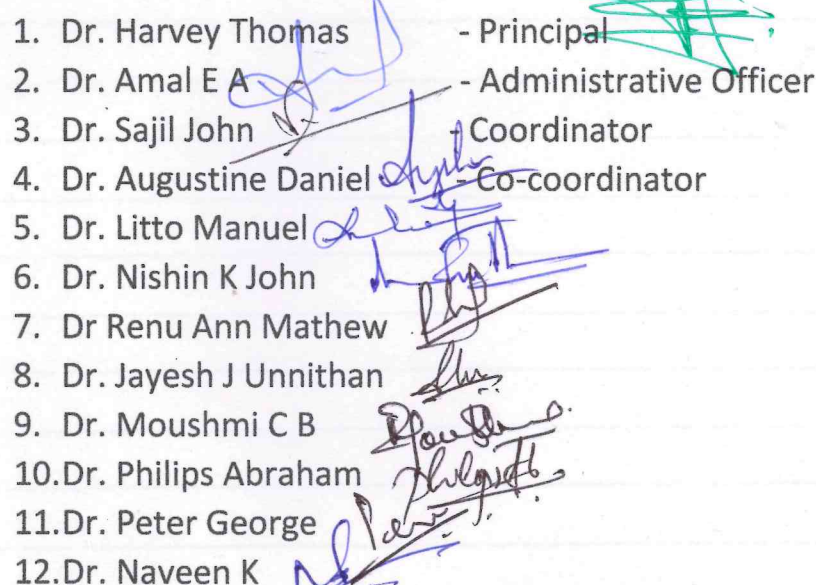 1. Dr. Harvey Thomas - Principal
2. Dr. Amal E A - Administrative Officer
3. Dr. Sajil John - Coordinator
4. Dr. Augustine Daniel - Co-coordinator
5. Dr. Litto Manuel
6. Dr. Nishin K John
7. Dr Renu Ann Mathew
8. Dr. Jayesh J Unnithan
9. Dr. Moushmi C B
10.Dr. Philips Abraham
11.Dr. Peter George
12.Dr. Naveen K